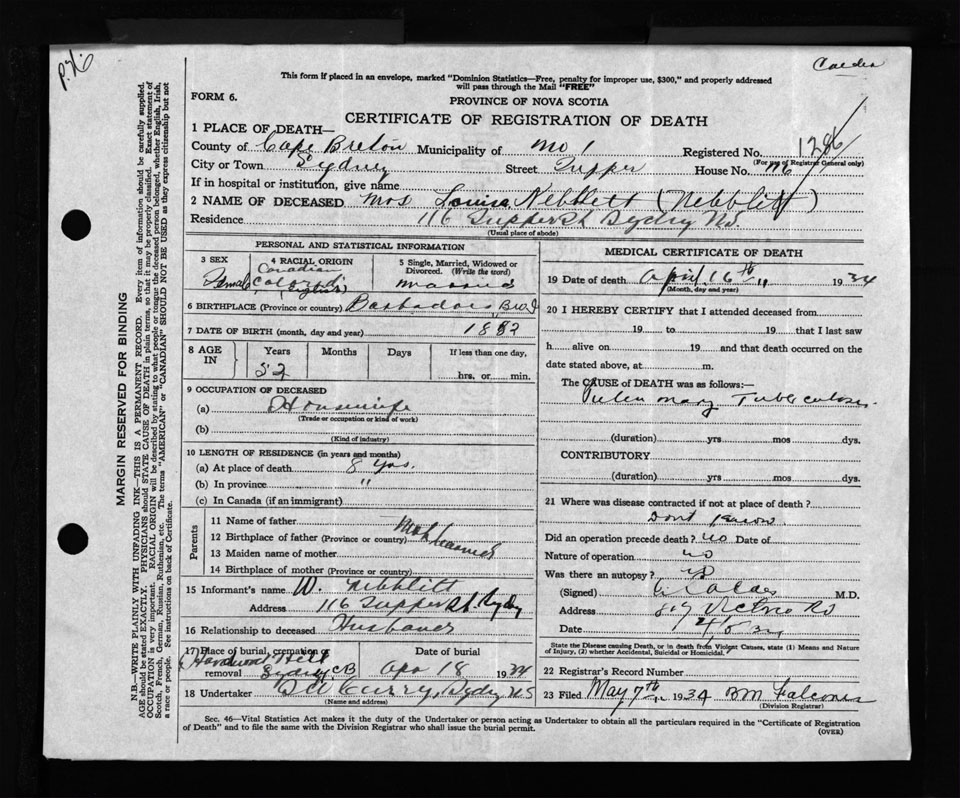 Calder
This form if placed in an envelope, marked "Dominion Statistics—Free, penalty for improper use, $300," and properly addressed
will pass through the Mail "FREE"
FORM 6.
PROVINCE OF NOVA SCOTIA
CERTIFICATE OF REGISTRATION OF DEATH
1 PLACE OF DEATH—
County of Cape Breton Municipality of No 1 Registered No. 1286
(For use of Registrar General only)
City or Town Sydney Street Tupper House No. 116
If in hospital or institution, give name
2 NAME OF DECEASED Mrs Louisa Nebblett (Nebblitt)
Residence 116 Tupper St Sydney N.S.
(Usual place of abode)
PERSONAL AND STATISTICAL INFORMATION
3 SEX
Female
4 RACIAL ORIGIN
Canadian
Colored
(English)
5 Single, Married, Widowed or
Divorced. (Write the word)
Married
6 BIRTHPLACE (Province or country) Barbadoes B.W.I
7 DATE OF BIRTH (month, day and year) 1882
8 AGE
IN
Years Months Days If less than one day,
52
hrs. or min.
9 OCCUPATION OF DECEASED
(a) Housewife
(Trade or occupation or kind of work)
(b)
(Kind of industry)
10 LENGTH OF RESIDENCE (in years and months)
(a) At place of death 8 yrs.
(b) In province "
(c) In Canada (if an immigrant)
Parents
11 Name of father
12 Birthplace of father (Province or country)
13 Maiden name of mother
14 Birthplace of mother (Province or country)
15 Informant's name W. Nebblitt
Address 116 Tupper St Sydney
16 Relationship to deceased Husband
17 Place of burial, cremation or
removal
Hardwood Hill
Sydney CB
Date of burial
Apr 18 1934
18 Undertaker Curry, Sydney N.S
(Name and address)
MEDICAL CERTIFICATE OF DEATH
19 Date of death April 16th " 1934
(Month, day and year)
20 I HEREBY CERTIFY that I attended deceased from
19 to 19 that I last saw
h alive on 19 and that death occurred on the
date stated above, at m.
The CAUSE of DEATH was as follows:—
Pulmonary Tuberculosis
(duration) yrs mos dys.
CONTRIBUTORY
(duration) yrs mos dys.
21 Where was disease contracted if not at place of death?
Dont know
Did an operation precede death? no Date of
Nature of operation no
Was there an autopsy? no
(Signed) Calder M.D.
Address 809 Victoria Rd
Date
State the Disease Causing Death, or in death from Violent Causes, state (1) Means and
Nature of Injury, (2) whether Accidental, Suicidal or Homicidal.
22 Registrar's Record Number
23 Filed May 7th 1934 BM Falconer
(Division Registrar)
Sec. 46—Vital Statistics Act makes it the duty of the Undertaker or person acting as Undertaker to obtain all the particulars required in the "Certificate of Registration
of Death" and to file the same with the Division Registrar who shall issue the burial permit.
(OVER)
MARGIN RESERVED FOR BINDING
N.B.—WRITE PLAINLY WITH UNFADING INK—THIS IS A PERMANENT RECORD. Every item of information should be carefully supplied.
AGE should be stated EXACTLY. PHYSICIANS should STATE CAUSE OF DEATH in plain terms, so that it may be properly classified. Exact statement of
OCCUPATION is very important. RACIAL ORIGIN will be described by stating to what people or tongue the deceased person belonged, whether English, Irish,
Scotch, French, German, Russian, Ruthenian, etc. The terms "AMERICAN" or "CANADIAN" SHOULD NOT BE USED as they express citizenship but not
a race or people. See instructions on back of Certificate.